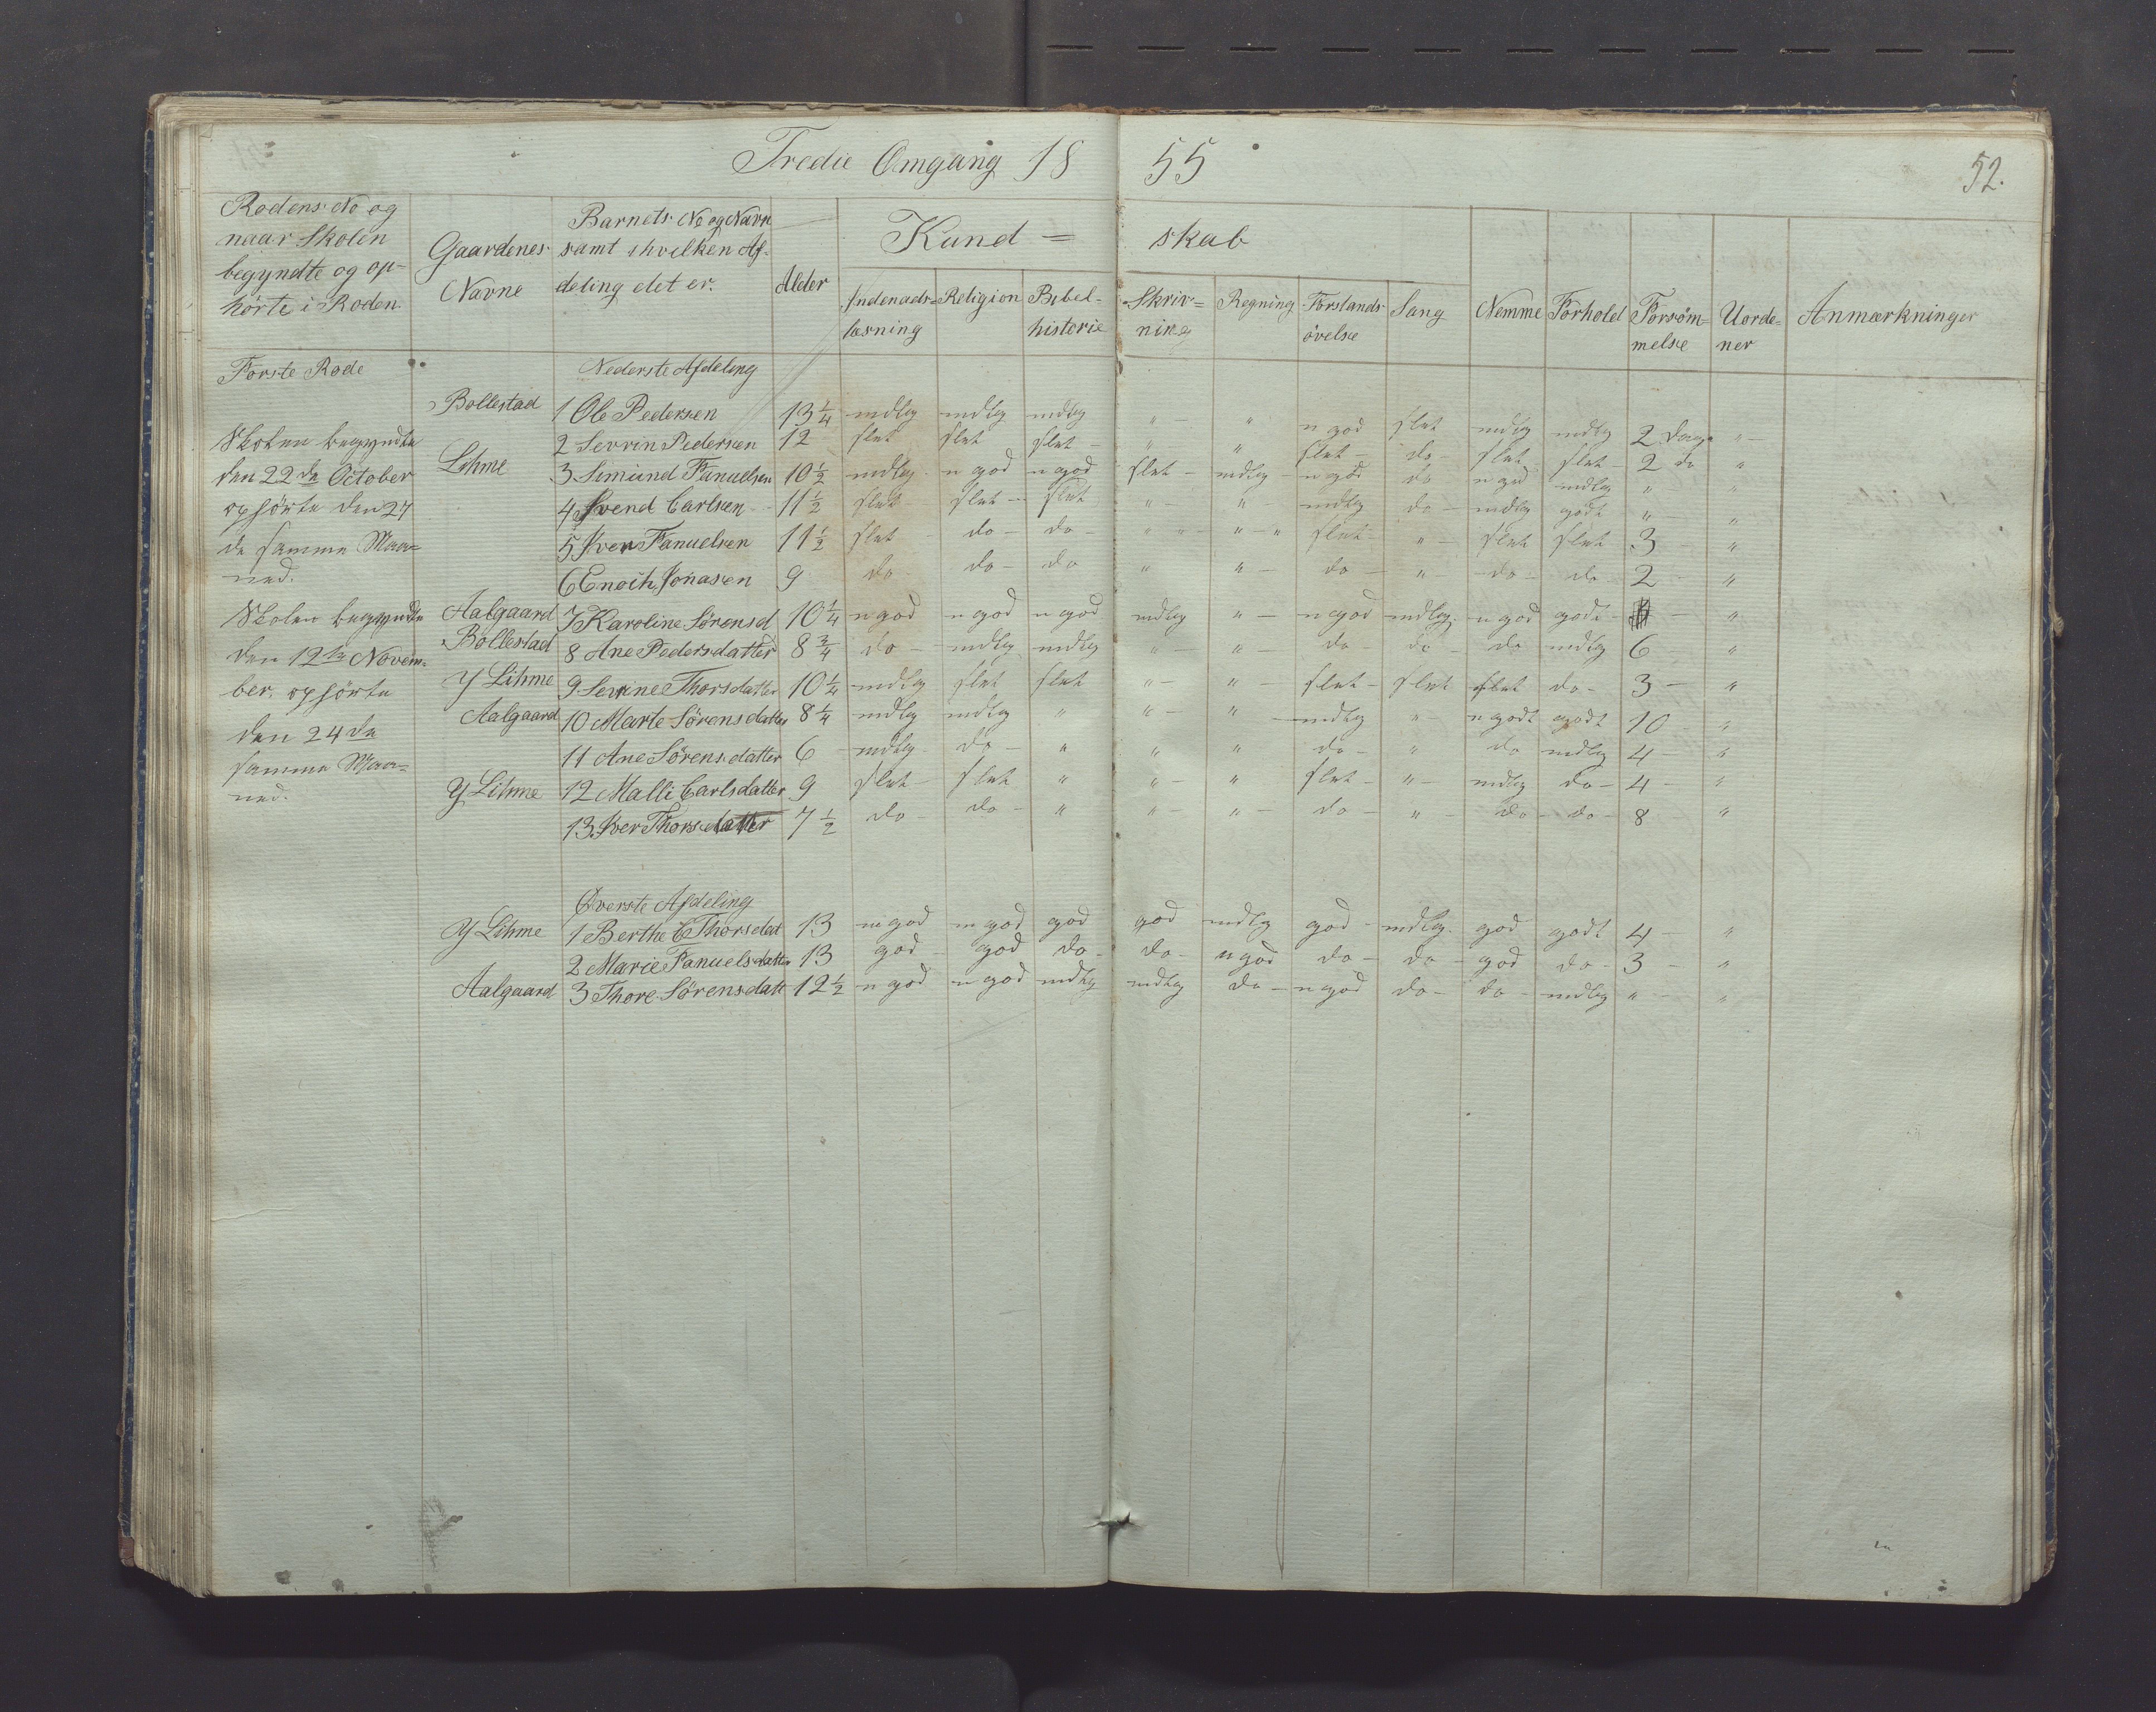 Tredie Omgang 18 55
52.
Rodens No og
naar Skolen
begyndte og op-
hörte i Roden.
Gaardenes
Navne
Barnets No og Navn
samt i hvilken Af-
deling det er.
Alder
Kund = skab
Indenads= læsning
Religion
Bibel- historie
Skriv= ning
Regning
Forstands övelse
Sang
Nemme
Forhold
Forsöm= melse
Uorde= ner
Anmærkninger
Förste Rode
Nederste Afdeling
Bollestad 1 Ole Pedersen 13 1/4 mdlg mdlg mdlg " " n god slet mdlg mdlg 2 Dage "
2 Sevrin Pedersen 12 slet slet slet " " slet do slet slet 2 do "
Lihme 3 Simund Fanuelsen 10 1/2 mdlg n god n god slet mdlg n god do n god mdlg " "
4 Svend Carlsen 11 1/2 slet slet slet " " mdlg do mdlg godt " "
5 Iver Fanuelsen 11 1/2 slet do do " " " " slet " slet slet 3 "
6 Enoch Jonasen 9 do do do " " do " do do 2 "
Aalgaard 7 Karoline Sörensd 10 1/4 n god n god n god mdlg " n god mdlg n god godt "
Bollestad 8 Ane Pedersdatter 8 3/4 do mdlg mdlg " " do do do mdlg 6 "
Y Lihme 9 Sevrine Thorsdatter 10 1/4 mdlg slet slet " " slet slet slet do 3 "
Aalgaard 10 Marte Sörensdatter 8 1/4 mdlg mdlg " " " mdlg " n godt godt 10 "
11 Ane Sörensdatter 6 mdlg do " " " do " do mdlg 4 "
Y Lihme 12 Malli Carlsdatter 9 slet slet " " " slet " mdlg do 4 "
13 Iver Thorsdatter 7 1/2 do do " " " do " do do 8 "
Skolen begyndte
den 22de October
ophörte den 27
de samme Maa=
ned.
Skolen begyndte
den 12te Novem-
ber, ophörte
den 24de
samme Maa=
ned.
Øverste Afdeling
Y Lihme 1 Berthe C Thorsdat 13 m god m god god god mdlg god mdlg god godt 4 "
2 Marie Fanuelsdatter 13 god god do do n god do do god do 3 "
Aalgaard 3 Thore Sörensdatt 12 1/2 n god n god mdlg mdlg do n god do do mdlg " "